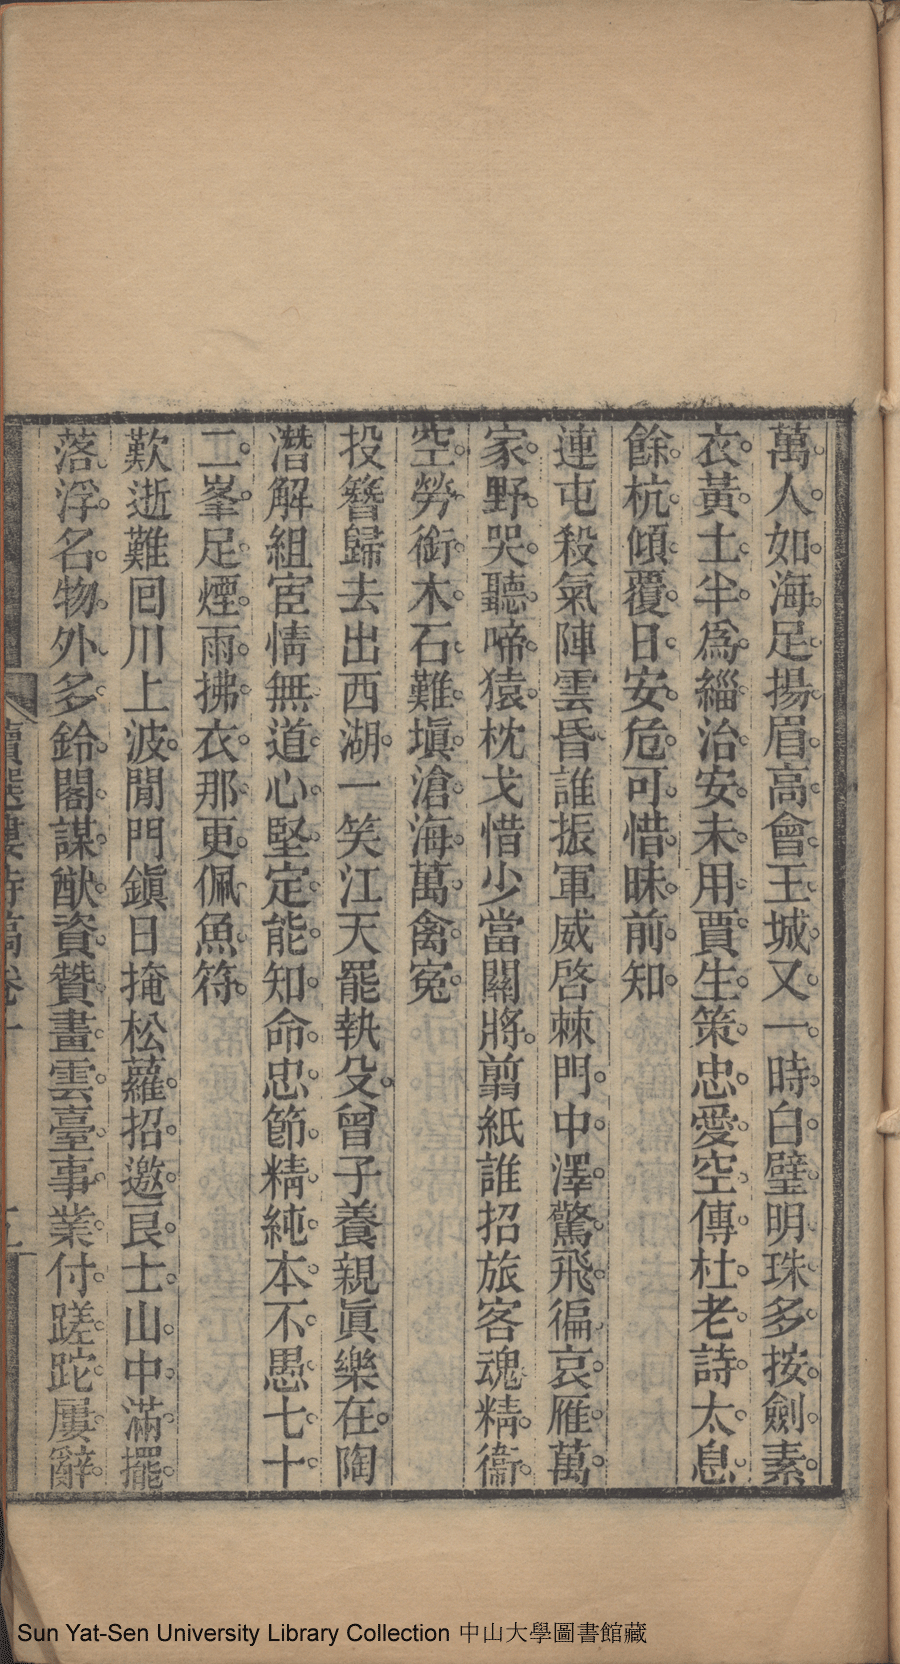 萬人如海足揚眉高會王城又一時白璧明珠多按劍素
衣黃土半爲緇治安未用賈生策忠愛空傳杜老詩太息
餘杭傾覆日安危可惜昧前知
連屯殺氣陣雲昏誰振軍威啓棘門中澤驚飛徧哀雁萬
家野哭聽啼猿枕戈惜少當關將剪紙誰招旅客魂精衞
空勞銜木石難塡滄海萬禽冤
投簪歸去出西湖一笑江天罷執殳曾子養親眞樂在陶
潛解組宦情無道心堅定能知命忠節精純本不愚七十
二峯足煙雨拂衣那更佩魚符
歎逝難回川上波閒門鎭日掩松蘿招邀艮士山中滿擺
落浮名物外多鈴閣謀猷資贊畫雲臺事業付蹉跎屢辭
讀選樓詩稿卷十
Sun Yat-Sen University Library Collection 中山大學圖書館藏